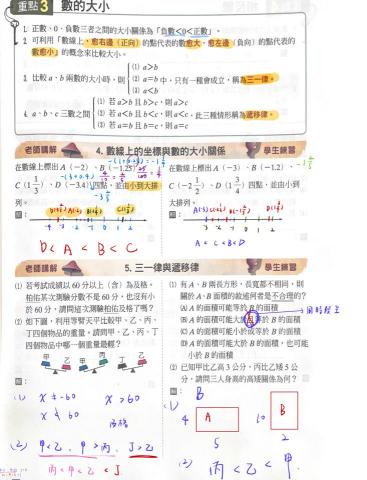 重點3 數的大小
1. 正數、0、負數三者之間的大小關係為「負數<0<正數」。
2. 可利用「數線上,愈右邊(正向)的點代表的數愈大,愈左邊(負向)的點代表的
數愈小」的概念來比較大小。
3. 比較 a、b 兩數的大小時,則
(1) a>b
(2) a=b
(3) a<b
中,只有一種會成立,稱為三一律。
4. a、b、c 三數之間
(1) 若 a>b 且 b>c,則 a>c
(2) 若 a<b 且 b<c,則 a<c
(3) 若 a=b 且 b=c,則 a=c
此三種情形稱為遞移律。
老師講解 4. 數線上的坐標與數的大小關係 學生練習
在數線上標出 A(-2)、B(-1.25)、
C(1 1/3)、D(-3.4)四點,並由小到大排
列。
D<A<B<C
在數線上標出 A(-3)、B(-1.2)、
C(-2 1/2)、D(1 3/4)四點,並由小到
大排列。
A<C<B<D
老師講解 5. 三一律與遞移律 學生練習
(1) 若考試成績以 60 分以上(含)為及格,
柏佑某次測驗分數不是 60 分,也沒有小
於 60 分,請問這次測驗柏佑及格了嗎?
(2) 如下圖,利用等臂天平比較甲、乙、丙、
丁四個物品的重量,請問甲、乙、丙、丁
四個物品中哪一個重量最輕?
(1) x≠60 x>60
x≮60 及格
(2) 甲<乙,甲>丙,丁>乙
丙<甲<乙<丁
(1) 有 A、B 兩長方形,長寬都不相同,則
關於 A、B 面積的敘述何者是不合理的?
(A) A 的面積可能等於 B 的面積
(B) A 的面積可能大於且等於 B 的面積
(C) A 的面積可能小於或等於 B 的面積
(D) A 的面積可能大於 B 的面積,也可能
小於 B 的面積
(2) 已知甲比乙高 3 公分,丙比乙矮 5 公
分,請問三人身高的高矮關係為何?
(1) B
4 A 5
10 B 2
(2) 丙<乙<甲